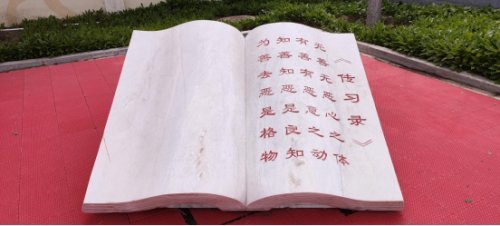 《传习录》
无善无恶心之体
有善有恶意之动
知善知恶是良知
为善去恶是格物